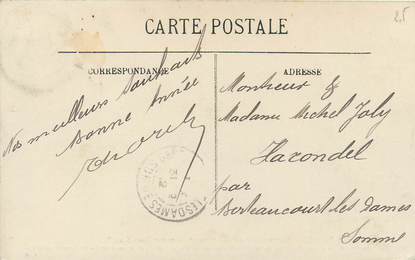 25
CARTE POSTALE
CORRESPONDANCE
ADRESSE
Nos meilleurs souhaits
bonne année
Monsieur &
Madame Michel Joly
Harondel
par
Berteaucourt les Dames
Somme
LES DAMES